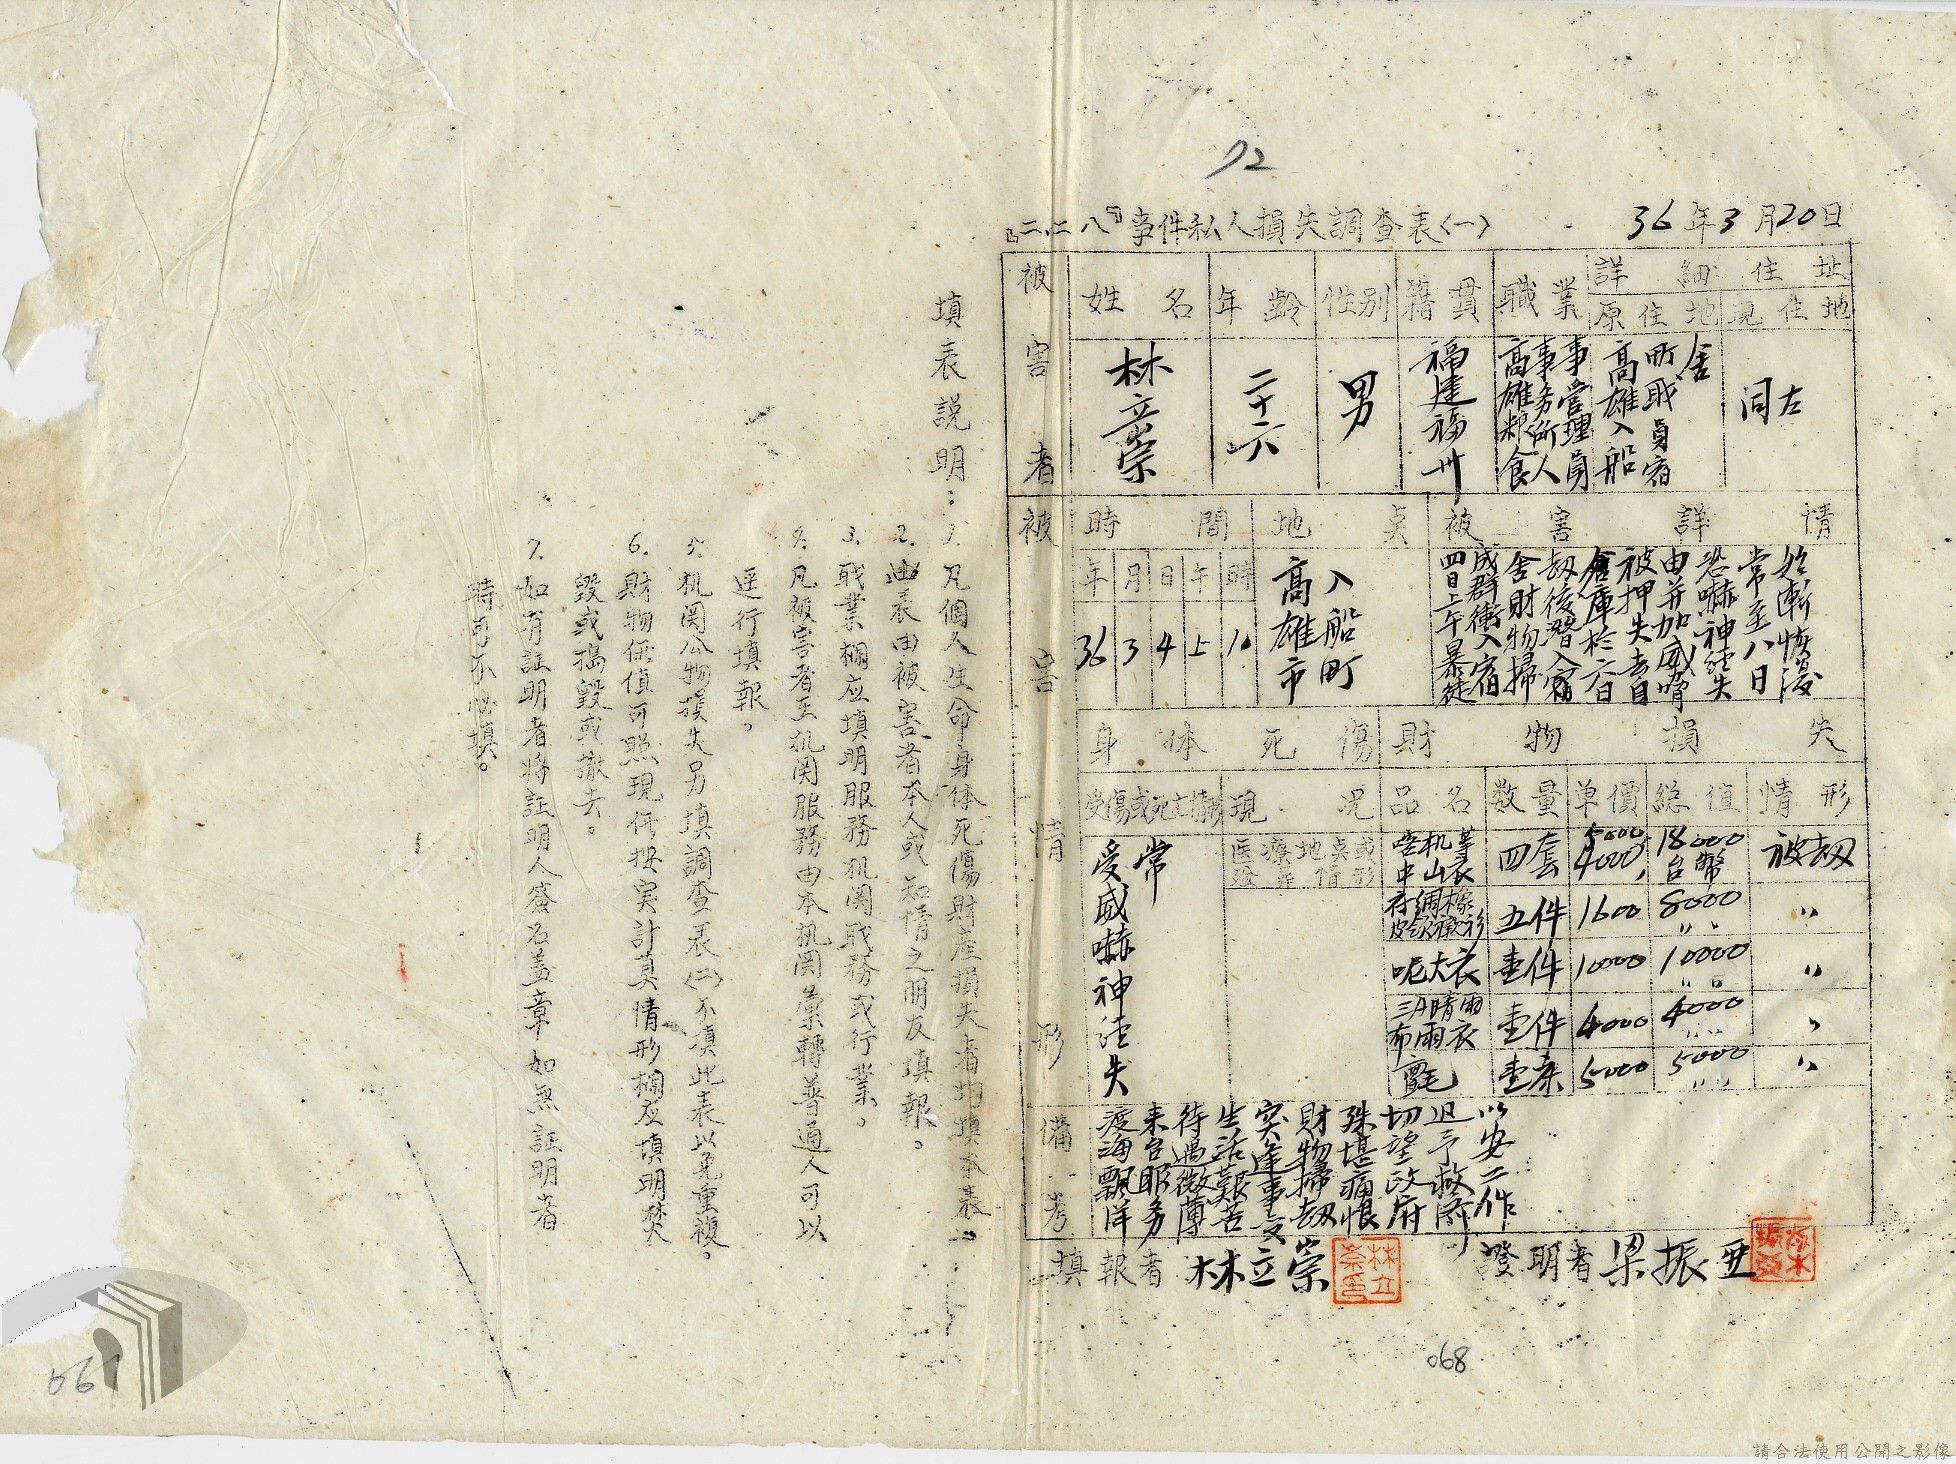 72
『二、二八』事件私人損失調查表〈一〉
36年3月20日
被害者
姓名
年齡
性別
籍貫
職業
詳細住址
原住地
現住地
林立崇
二十六
男
福建福州
高雄粮食
事務所人
事管理員
高雄入船
町职員宿
舍
同左
被害情形
時間
地点
被害詳情
年
月
日
午
時
36
3
4
上
10
高雄市
入船町
四日上午暴徒
成群衝入宿
舍財物掃
劫後潛入宿
倉庫於六日
被押失去自
由并加威脅
恐嚇神経失
常至八日
始漸恢復
身体死傷
財物損失
受傷或死亡情形
現况
医療地点或
殮葬情形
品名
数量
单價
総值
情形
受威嚇神経失
常
嗶机等
中山衣
四套
5000
4000
18000
台幣
被劫
府綢橡
皮領襯衫
五件
1600
8000
〃
〃
呢大衣
壹件
10000
10000
〃
〃
三A晴雨
布雨衣
壹件
4000
4000
〃
〃
壹床
5000
5000
〃
〃
備考
渡海飄洋
来台服务
待遇微薄
生活艱苦
突逢事变
財物掃劫
殊堪痛恨
切望政府
迅予救济
以安工作
填報者 林立崇
林立崇印
證明者 梁振亜
068
填表説明:
1. 凡個人生命身体死傷財產損失者均填本表。
2. 此表由被害者本人或知情之朋友填報。
3. 職業欄应填明服務机関职務或行業。
4. 凡被害者在机関服務由本机関彙轉普通人可以
逕行填報。
5. 机関公物損失另填調查表〈二〉不填此表以免重複。
6. 財物価值可照現価按实計算情形欄应填明焚
毀或搗毀或撤去。
7. 如有証明者将証明人簽名盖章如無証明者
時可不必填。
067
請合法使用公開之影像